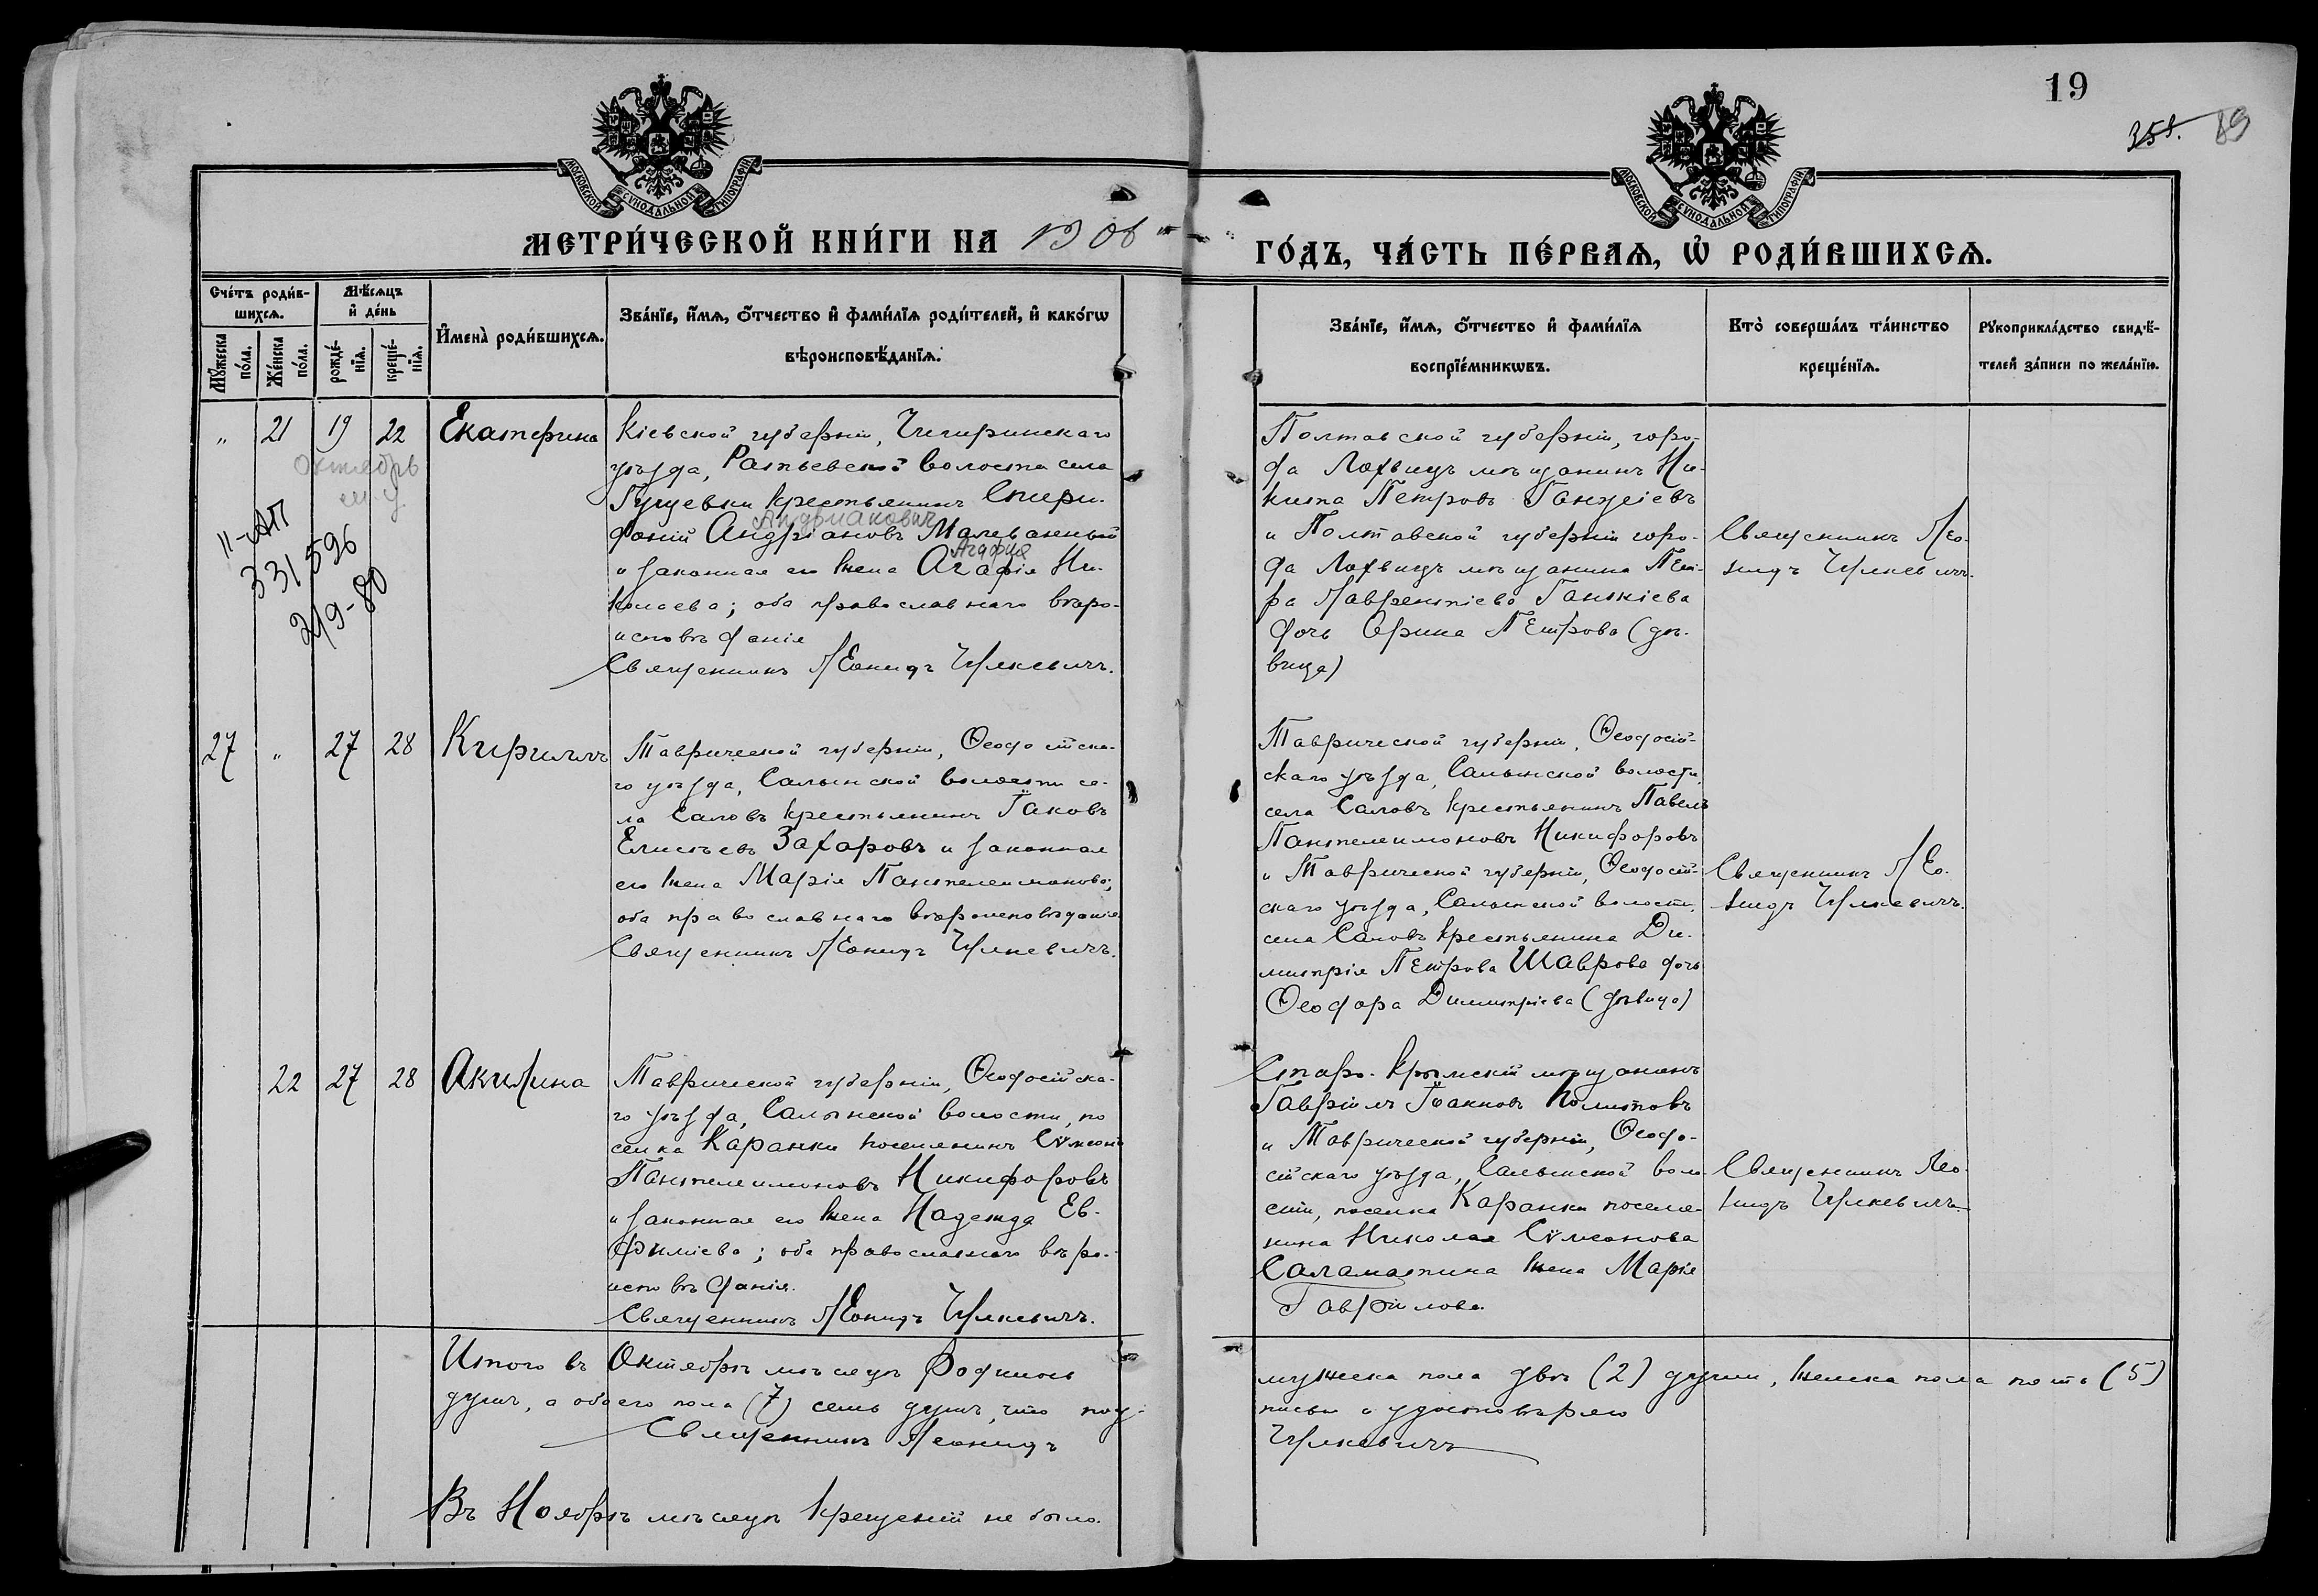 19
358. 89
МОСКОВСКОЙ СѴНОДАЛЬНОЙ ТИПОГРАФІИ
МОСКОВСКОЙ СѴНОДАЛЬНОЙ ТИПОГРАФІИ
МЕТРИ́ЧЕСКОЙ КНИ́ГИ НА 1906 го́дъ, ча́сть пе́рваѧ, ѡ҆ роди́вшихсѧ.
Сче́тъ роди́в-
шихсѧ.
Мꙋ́жеска по́ла.
Же́нска по́ла.
Мѣ́сѧцъ
и҆ де́нь
рожде́-
нїѧ.
креще́-
нїѧ.
И҆мена̀ роди́вшихсѧ.
Зва́нїе, и҆́мѧ, ѻ҆́тчество и҆ фами́лїѧ роди́телей, и҆ како́гѡ
вѣроисповѣ́данїѧ.
Зва́нїе, и҆́мѧ, ѻ҆́тчество и҆ фами́лїѧ
воспрїе́мникѡвъ.
Кто̀ соверша́лъ та́инство
креще́нїѧ.
Рꙋкоприкла́дство свидѣ́-
телей за́писи по жела́нїю.
" 21 19 22 Екатерина
Октябрь
II-АП
331596
2/9-80
Кіевской губерніи, Чигиринскаго
уѣзда, Ратьевской волости села
Гущевки крестьянинъ Спири-
доній Андріановъ Малеванный
Андриакович
и законная его жена Агафія Ни-
Агафия
колаева; оба православнаго вѣро-
исповѣданія
Священникъ Леонидъ Чулкевичъ.
Полтавской губерніи, горо-
да Лохвицъ мѣщанинъ Ни-
кита Петровъ
и Полтавской губерніи горо-
да Лохвицъ мѣщанина Пет-
ра Лаврентіева
дочь Орина Петрова (дѣ-
вица)
Священникъ Лео-
нидъ Чулкевичъ.
27 " 27 28 Кириллъ
Таврической губерніи, Ѳеодосійска-
го уѣзда, Салынской волости се-
ла Саловъ крестьянинъ Іаковъ
Елисѣевъ Захаровъ и законная
его жена Марія Пантелеимонова;
оба православнаго вѣроисповѣданія.
Священникъ Леонидъ Чулкевичъ.
Таврической губерніи, Ѳеодосій-
скаго уѣзда, Салынской волости,
села Саловъ крестьянинъ Павелъ
Пантелеимоновъ Никифоровъ
и Таврической губерніи, Ѳеодосій-
скаго уѣзда, Салынской волости,
села Саловъ крестьянина Ди-
митрія Петрова Шаврова дочь
Ѳеодора Димитріева (дѣвица)
Священникъ Лео-
нидъ Чулкевичъ.
22 27 28 Акилина
Таврической губерніи, Ѳеодосійска-
го уѣзда, Салынской волости, по
селка Каранки поселянинъ Сѵмеонъ
Пантелеимоновъ Никифоровъ
и законная его жена Надежда Ев-
фиміева; оба православнаго вѣро-
исповѣданія.
Священникъ Леонидъ Чулкевичъ.
Старо-Крымскій мѣщанинъ
Гавріилъ Іоанновъ Политовъ
и Таврической губерніи, Ѳеодо-
сійскаго уѣзда, Салынской воло-
сти, поселка Каранки поселя-
нина Николая Сѵмеонова
Саламатина жена Марія
Гавріилова.
Священникъ Лео-
нидъ Чулкевичъ.
Итого въ Октябрѣ мѣсяцѣ родилось мужеска пола двѣ (2) души, женска пола пять (5)
душъ, а обоего пола (7) семь душъ, что под-
писью и удостовѣряю
Священникъ Леонидъ Чулкевичъ
Въ Ноябрѣ мѣсяцѣ крещеній не было.